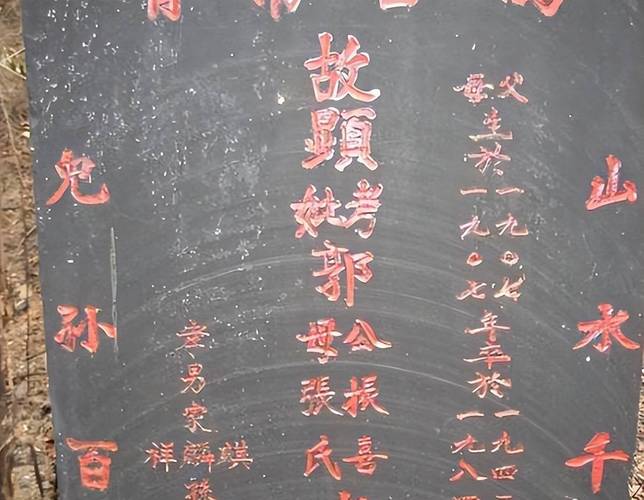 山水千
父一九〇七一九四
母生於一九〇七年卒於一九八
故顯考郭公振喜
妣母張氏
孝男家麟
祥
兒孙百